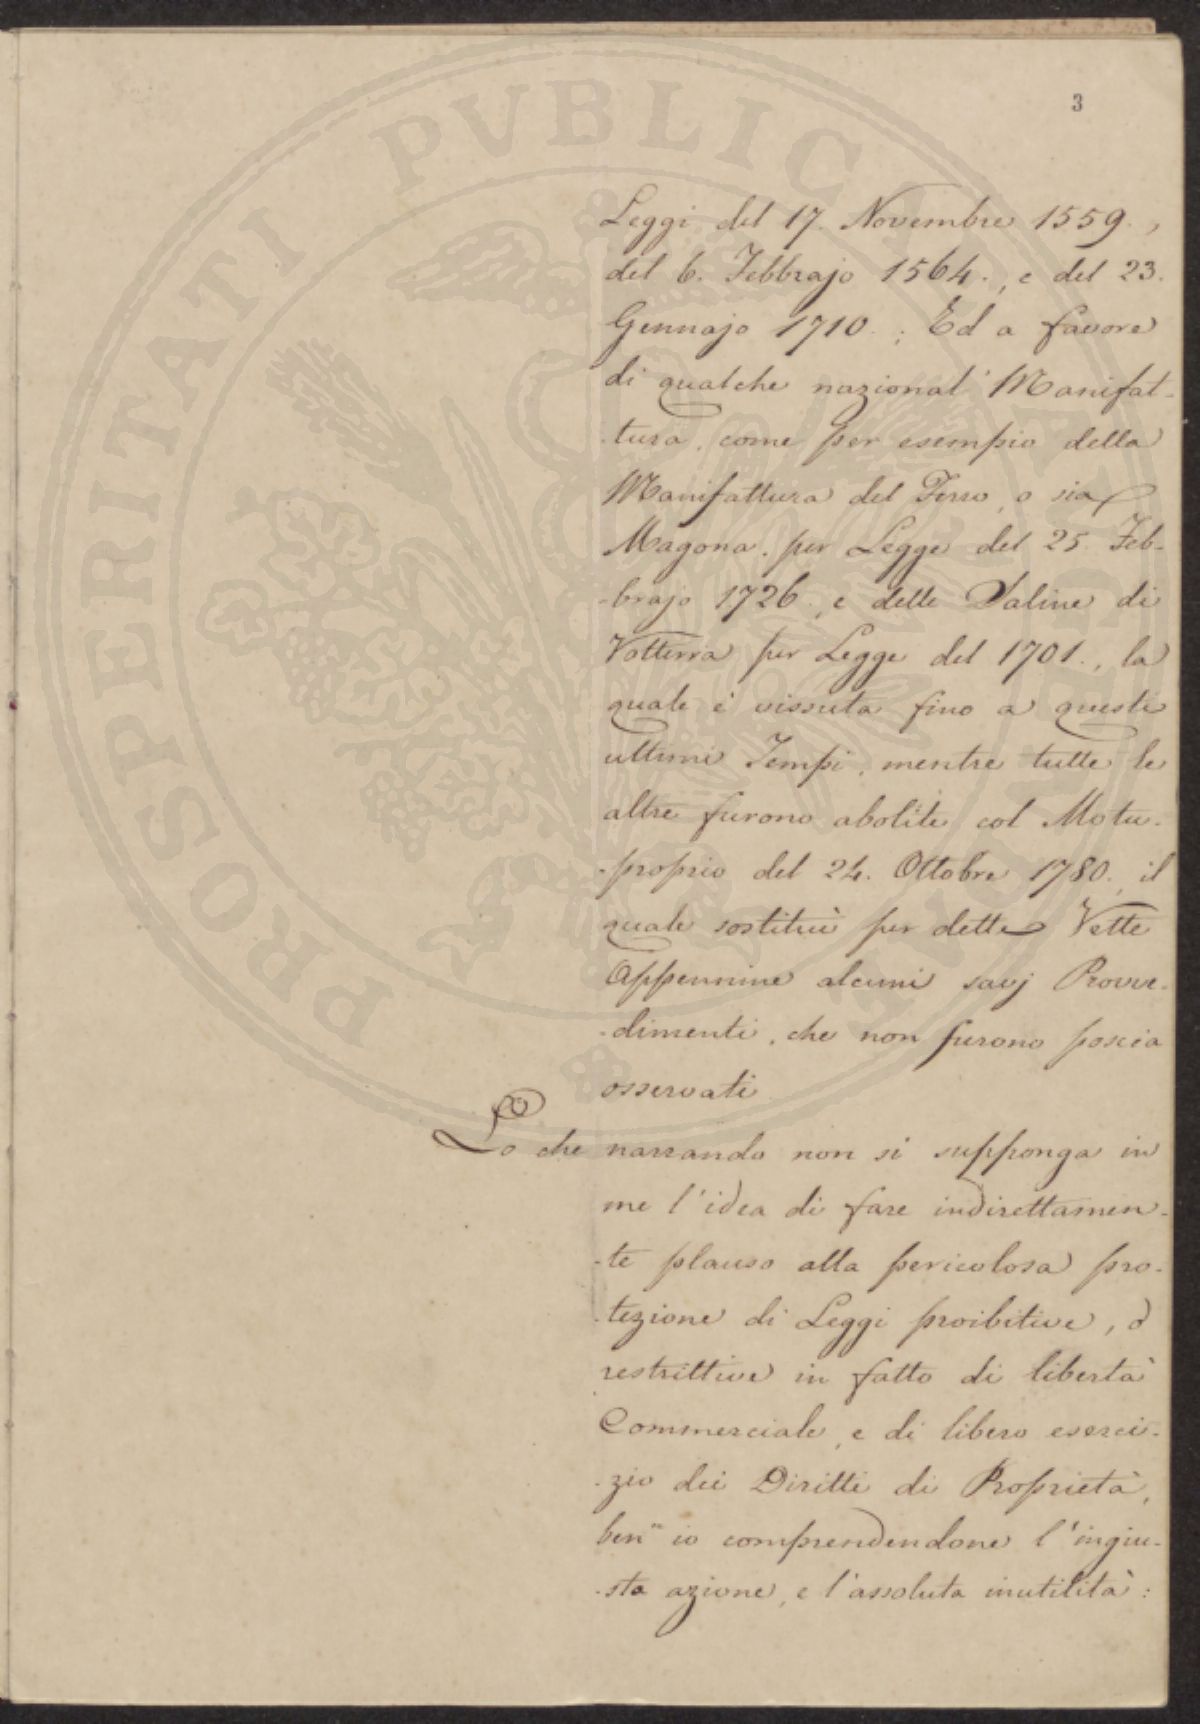 3
PROSPERITATI PVBLICAE
Leggi del 17. Novembre 1559.,
del 6. Febbrajo 1564., e del 23.
Gennajo 1710.; Ed a favore
di qualche nazional' Manifat-
-tura, come per esempio della
Manifattura del Ferro, o sia
Magona, per Legge del 25. Feb-
-brajo 1726., e delle Saline di
Volterra per Legge del 1701., la
quale è vissuta fino a questi
ultimi Tempi, mentre tutte le
altre furono abolite col Motu-
-proprio del 24. Ottobre 1780., il
quale sostituì per dette Vette
Appennine alcuni savj Provve-
-dimenti, che non furono poscia
osservati
Lo che narrando non si supponga in
me l'idea di fare indirettamen-
-te plauso alla pericolosa pro-
-tezione di Leggi proibitive, ò
restrittive in fatto di libertà
Commerciale, e di libero eserci-
-zio dei Diritti di Proprietà,
ben" io comprendendone l'ingiu-
-sta azione, e l'assoluta inutilità: